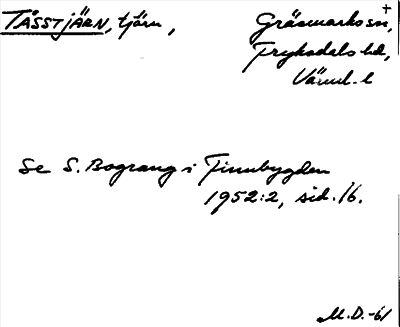 TÅSSTJÄRN, tjärn, Gräsmarks sn, +
Fryksdals hd,
Värml. l
Se S. Bograng i Finnbygden
1952:2, sid. 16.
M.D.-61